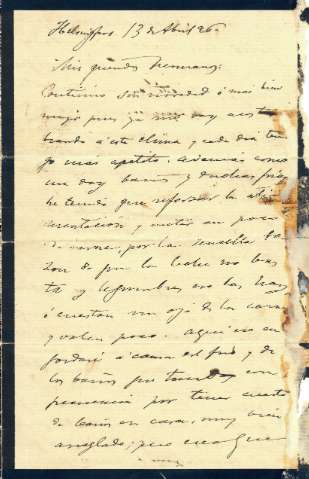 Helsingfors 13 de Abril 96.
Mis queridos hermanos:
Continúo sin novedad ó mas bien
mejor pues ya me voy acostum
brando á este clima y cada dia ten
go mas apetito. Ademas como
me doy baños y duchas frias
he tenido que reforzar la ali
mentación y meter un poco
de carne, por la sencilla ra
zon de que la leche no bas
ta y legumbres no las hay
ó cuestan un ojo de la cara
y valen poco. Aqui no en
gordaré á causa del frio y de
los baños que tomo con
frecuencia por tener cuarto
de baño en casa, muy bien
arreglado; pero creo que